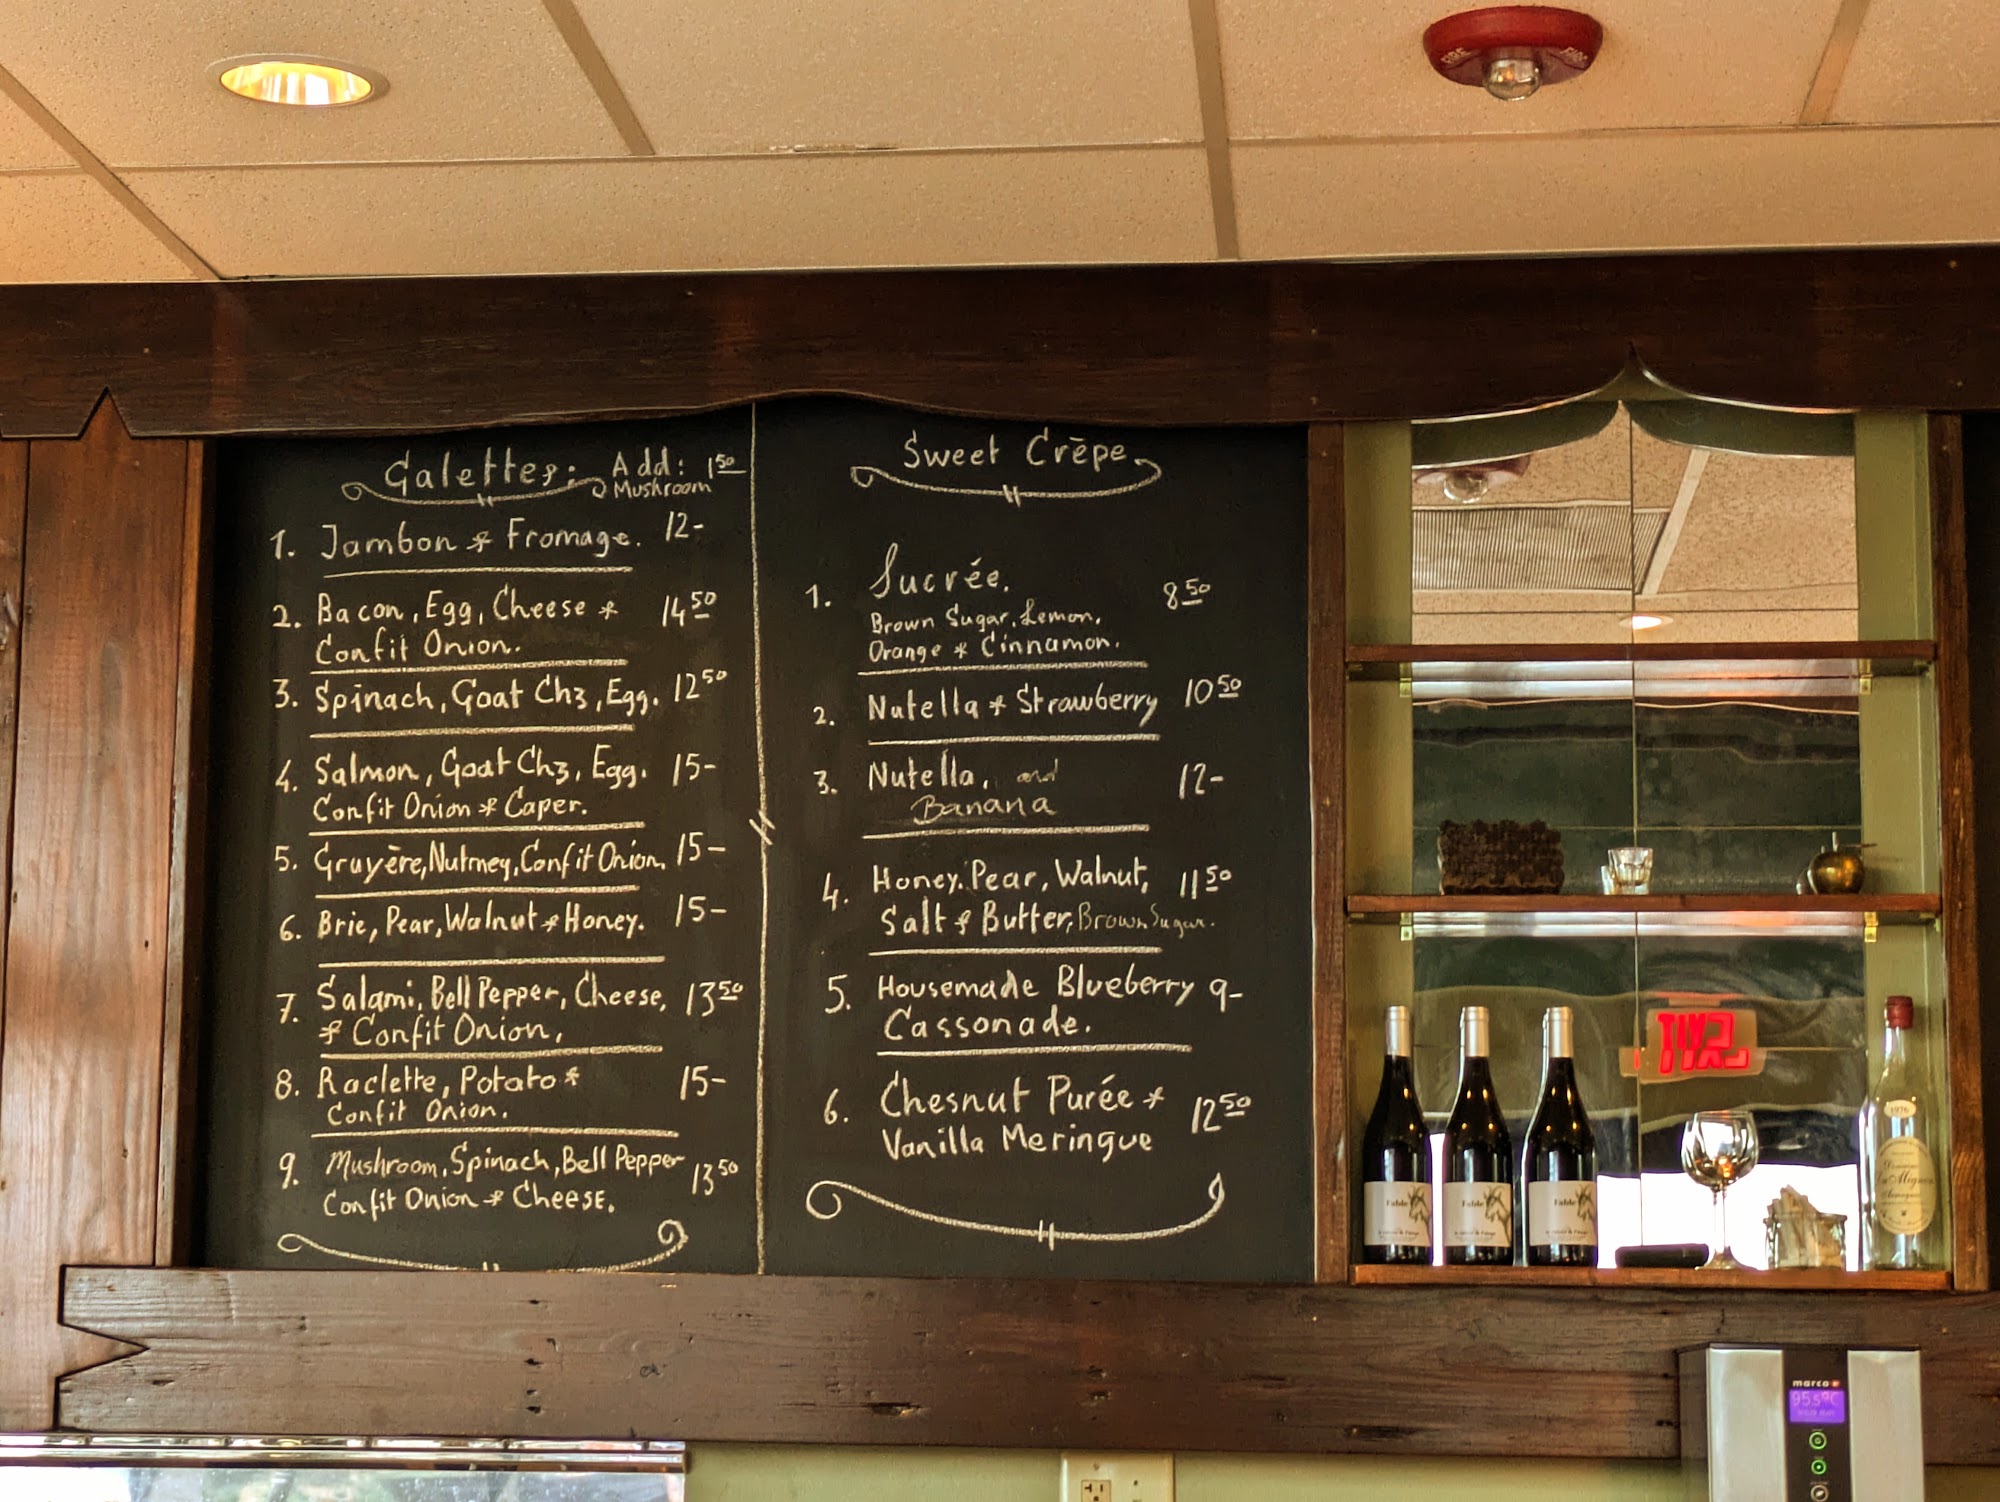 FIRE
FIRE
Galettes: Add: 1 50
Mushroom
1. Jambon & Fromage. 12-
2. Bacon, Egg, Cheese & 14 50
Confit Onion.
3. Spinach, Goat Ch3, Egg. 12 50
4. Salmon, Goat Ch3, Egg. 15-
Confit Onion & Caper.
5. Gruyère, Nutmeg, Confit Onion, 15-
6. Brie, Pear, Walnut & Honey. 15-
7. Salami, Bell Pepper, Cheese, 13 50
& Confit Onion,
8. Raclette, Potato & 15-
Confit Onion.
9. Mushroom, Spinach, Bell Pepper 13 50
Confit Onion & Cheese.
Sweet Crêpe
1. Sucrée. 8 50
Brown Sugar, Lemon,
Orange & Cinnamon.
2. Nutella & Strawberry 10 50
3. Nutella, and 12-
Banana
4. Honey. Pear, Walnut, 11 50
Salt & Butter, Brown Sugar.
5. Housemade Blueberry 9-
Cassonade.
6. Chesnut Purée & 12 50
Vanilla Meringue
EXIT
Fable
Fable
Fable
1976
marco
95.5°C